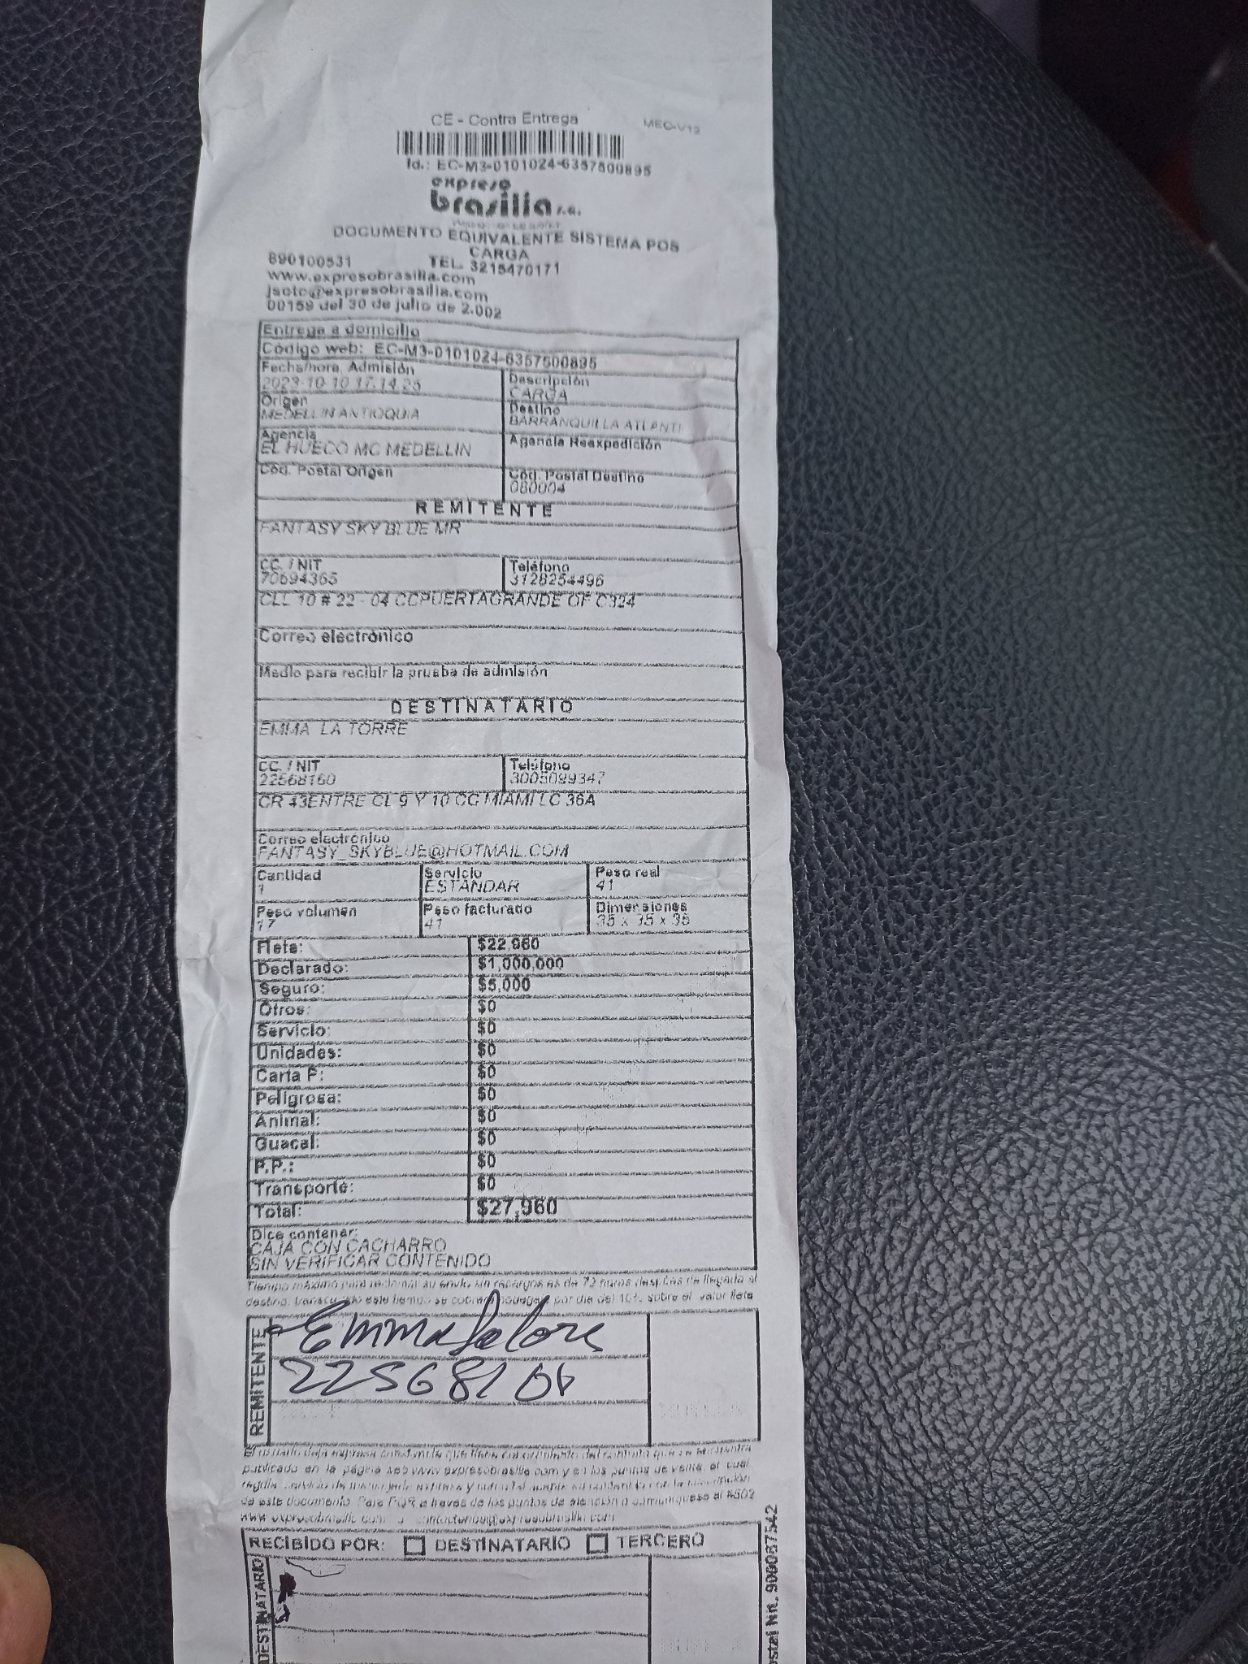 CE - Contra Entrega
MEC-V12
Id.: EC-M3-0101024-6357500895
expreso
brasilia s.a.
DOCUMENTO EQUIVALENTE SISTEMA POS
CARGA
890100531 TEL. 3215470171
www.expresobrasilia.com
jsoto@expresobrasilia.com
00159 del 30 de julio de 2.002
Entrega a domicilio
Código web: EC-M3-0101024-6357500895
Fecha/hora. Admisión Descripción
2023-10-10 17.14.25 CARGA
Origen Destino
MEDELLIN ANTIOQUIA BARRANQUILLA ATLANTI
Agencia Agencia Reexpedición
EL HUECO MC MEDELLIN
Cód. Postal Origen Cód. Postal Destino
080004
REMITENTE
FANTASY SKY BLUE MR
CC. / NIT Teléfono
70694365 3128254496
CLL 10 # 22 - 04 CCPUERTAGRANDE OF C324
Correo electrónico
Medio para recibir la prueba de admisión
DESTINATARIO
EMMA LA TORRE
CC. / NIT Teléfono
22568160 3005099347
CR 43ENTRE CL 9 Y 10 CC MIAMI LC 36A
Correo electrónico
FANTASY_SKYBLUE@HOTMAIL.COM
Cantidad Servicio Peso real
1 ESTANDAR 41
Peso volumen Peso facturado Dimensiones
17 41 35 x 35 x 35
Flete: $22,960
Declarado: $1,000,000
Seguro: $5,000
Otros: $0
Servicio: $0
Unidades: $0
Carta P: $0
Peligrosa: $0
Animal: $0
Guacal: $0
P.P.: $0
Transporte: $0
Total: $27,960
Dice contener:
CAJA CON CACHARRO
SIN VERIFICAR CONTENIDO
Tiempo máximo para reclamar su envío sin recargos es de 72 horas después de llegada al
destino. este tiempo se cobrará bodegaje por día del 10% sobre el valor flete
REMITENTE
Emma
publicado en la página web www.expresobrasilia.com y en los puntos de venta, el cual
de este documento. Para PQR a traves de los puntos de atención o comuniquese al #502
RECIBIDO POR: DESTINATARIO TERCERO
DESTINATARIO
ostal Nit. 900087542